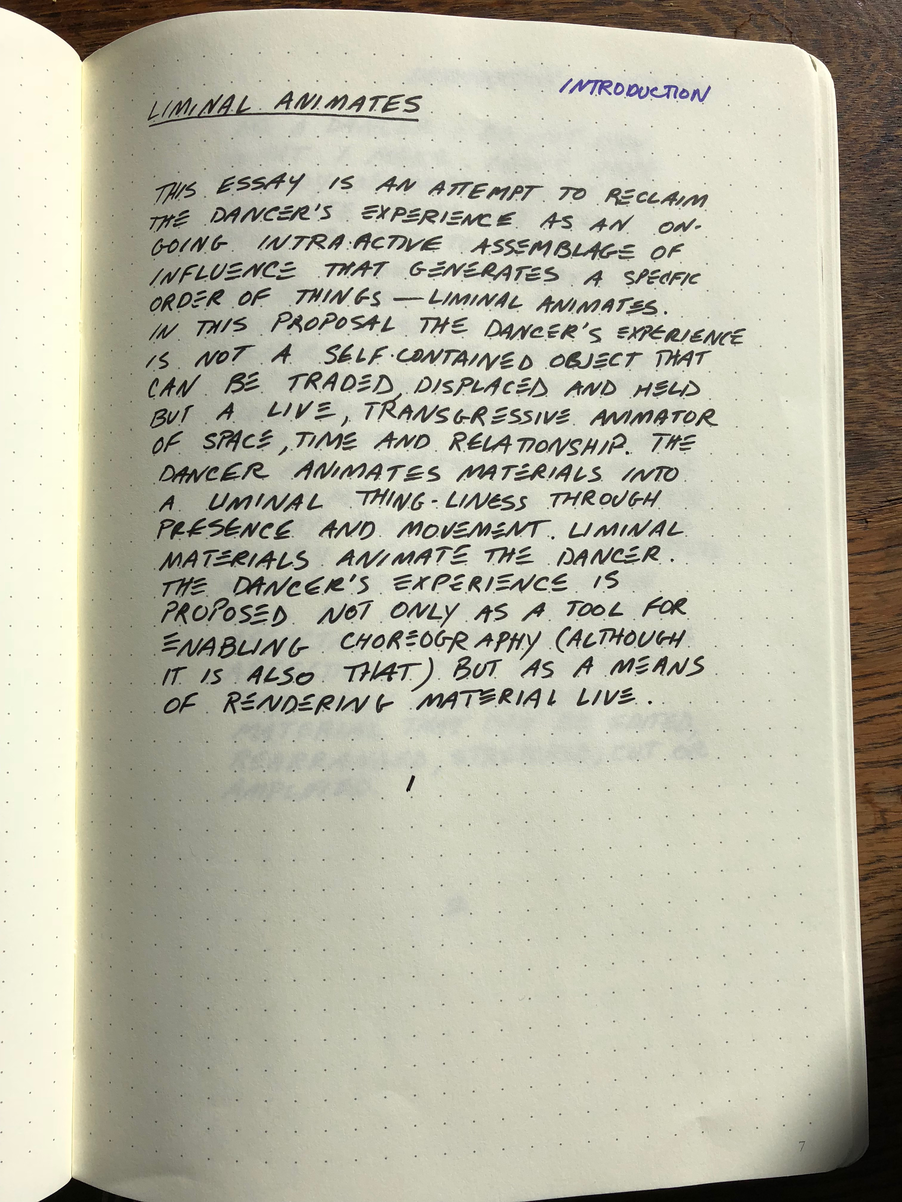 INTRODUCTION
LIMINAL ANIMATES
THIS ESSAY IS AN ATTEMPT TO RECLAIM
THE DANCER'S EXPERIENCE AS AN ON-
GOING INTRA-ACTIVE ASSEMBLAGE OF
INFLUENCE THAT GENERATES A SPECIFIC
ORDER OF THINGS — LIMINAL ANIMATES.
IN THIS PROPOSAL THE DANCER'S EXPERIENCE
IS NOT A SELF-CONTAINED OBJECT THAT
CAN BE TRADED, DISPLACED AND HELD
BUT A LIVE, TRANSGRESSIVE ANIMATOR
OF SPACE, TIME AND RELATIONSHIP. THE
DANCER ANIMATES MATERIALS INTO
A LIMINAL THING-LINESS THROUGH
PRESENCE AND MOVEMENT. LIMINAL
MATERIALS ANIMATE THE DANCER.
THE DANCER'S EXPERIENCE IS
PROPOSED NOT ONLY AS A TOOL FOR
ENABLING CHOREOGRAPHY (ALTHOUGH
IT IS ALSO THAT) BUT AS A MEANS
OF RENDERING MATERIAL LIVE.
REARRANGED, STRETCHED, CUT OR
AMPLIFIED
1
7